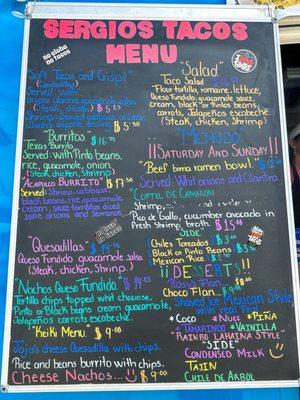 SERGIOS TACOS
MENU
no glove
no tacos
"Soft Tacos and Crispi"
Served: with
onions cilantro guacamole salsa
(Steak, chicken) $5.75
cilantro chipotle dressing $5.50
"Burritos" $16.75
Texas Burrito
Served: With Pinto beans,
rice, guacamole, onions
(steak, chicken, shrimp)
"Acapulco Burrito" $17.50
Served: Shrimp, cabbage,
black beans, rice, guacamole,
"Quesadillas"
Queso Fundido guacamole salsa
(Steak, chicken, Shrimp)
"Nachos Queso Fundido"
Tortilla chips topped whit chowse,
Pinto or Black beans cream guacamole,
Jalapeños carrots escabeche.
"Keiki Menu" $9.00
Jojo's cheese Quesadilla with chips.
Rice and beans burrito with chips.
Cheese Nachos... $9.00
"Salad"
Taco Salad
Flour tortilla, romaine, lettuce,
Queso Fundido, guacamole sauce,
cream, black or Pinto beans,
carrots, Jalapeños escabeche
(Steak, chicken, Shrimp)
MENUDO
!!SATURDAY AND SUNDAY!!
"Beef birria ramen bowl."
Served: Whit onions and Cilantra
"Coctel de Camaron
Pico de Gallo, cucumber avocado in
Fresh Shrimp, broth. $15
"SIDE"
Chiles Toreados $3
Black or Pinto Beans $3
Mexican Rice
¡¡DESSERTS!!
Rosy's Flan $8.00
Choco Flan. $9.00
Shaved ice Mexican Style
with real Fruit
*Coco *Nuez *Piña
*Tamarindo *Vainilla
Rainbo Lahaina Style
"SIDE"
Condensed Milk
Tajin
Chile de Arbol